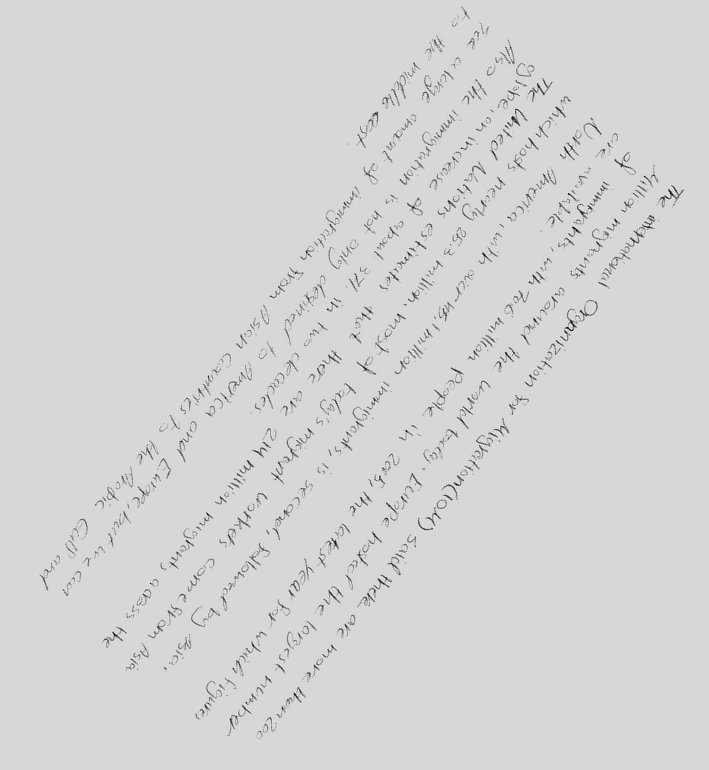 The international Organization for Migration(IOM) said there are more than 200
Million migrants around the world today. Europe hosted the largest number
of immigrants, with 70.6 million people in 2005, the latest year for which figures
are available.
North America, with over 45.1 million immigrants, is second, followed by Asia,
which hosts nearly 25.3 million. most of today's migrant workers come from Asia.
The United Nations estimates that there are 214 million migrants across the
globe, an increase of about 37% in two decades.
Also the immigration is not only destined to America and Europe, but we can
see a large amount of immigration from Asian Countries to the Arabic Gulf and
to the middle east.